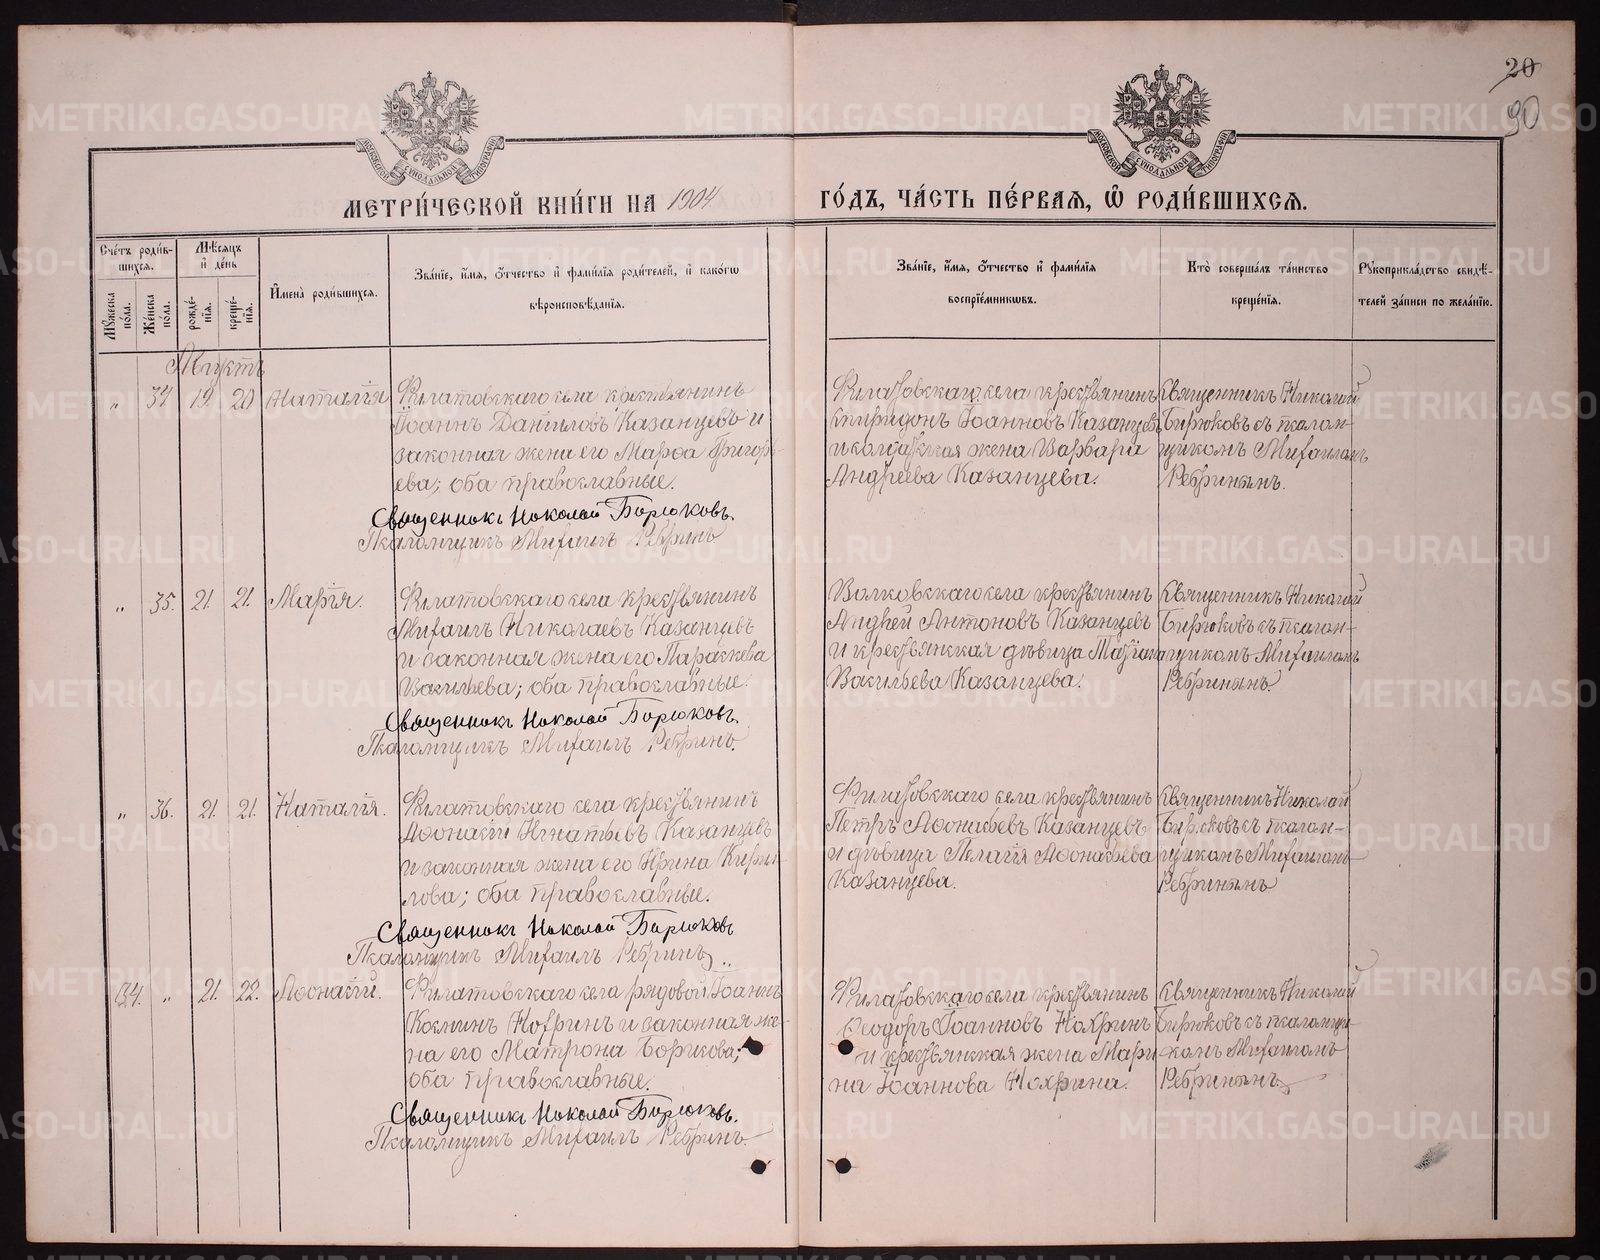 20
90
МОСКОВСКОЙ СѴНОДАЛЬНОЙ ТИПОГРАФІИ
МОСКОВСКОЙ СѴНОДАЛЬНОЙ ТИПОГРАФІИ
МЕТРИ́ЧЕСКОЙ КНИ́ГИ НА 1904 ГО́ДЪ, ЧА́СТЬ ПЕ́РВАѦ, Ѡ҆ РОДИ́ВШИХСѦ.
Сче́тъ роди́в-
шихсѧ.
Мꙋ́жеска по́ла.
Же́нска по́ла.
Мѣ́сѧцъ
и҆ де́нь
рожде́-
нїѧ.
креще́-
нїѧ.
И҆мена̀ роди́вшихсѧ.
Зва́нїе, и҆́мѧ, ѻ҆́тчество и҆ фами́лїѧ роди́телей, и҆ како́гѡ
вѣроисповѣ́данїѧ.
Зва́нїе, и҆́мѧ, ѻ҆́тчество и҆ фами́лїѧ
воспрїе́мникѡвъ.
Кто̀ соверша́лъ та́инство
креще́нїѧ.
Рꙋкоприкла́дство свидѣ́-
телей за́писи по жела́нїю.
Августъ
„ 34 19. 20 Наталія
Филатовскаго села крестьянинъ
Іоаннъ Даниловъ Казанцевъ и
законная жена его Марѳа Григорь-
ева; оба православные.
Священникъ Николай Бирюковъ.
Псаломщикъ Михаилъ Ребринъ
Филатовскаго села крестьянинъ
Спиридонъ Іоанновъ Казанцевъ
и солдатская жена Варвара
Андреева Казанцева.
Священникъ Николай
Бирюковъ съ псалом-
щикомъ Михаиломъ
Ребринымъ.
„ 35. 21. 21. Марія.
Филатовскаго села крестьянинъ
Михаилъ Николаевъ Казанцевъ
и законная жена его Параскева
Васильева; оба православные.
Священникъ Николай Бирюковъ.
Псаломщикъ Михаилъ Ребринъ.
Волковскаго села крестьянинъ
Андрей Антоновъ Казанцевъ
и крестьянская дѣвица Марія
Васильева Казанцева.
Священникъ Николай
Бирюковъ съ псалом-
щикомъ Михаиломъ
Ребринымъ.
„ 36. 21. 21. Наталія.
Филатовскаго села крестьянинъ
Аѳонасій Игнатьевъ Казанцевъ
и законная жена его Ирина Кири-
лова; оба православные.
Священникъ Николай Бирюковъ
Псаломщикъ Михаилъ Ребринъ
Филатовскаго села крестьянинъ
Петръ Аѳонасьевъ Казанцевъ
и дѣвица Пелагія Аѳонасьева
Казанцева.
Священникъ Николай
Бирюковъ съ псалом-
щикомъ Михаиломъ
Ребринымъ
34. „ 21. 22. Аѳонасій.
Филатовскаго села рядовой Іоаннъ
Козминъ Нохринъ и законная же-
на его Матрона Борисова;
оба православные.
Священникъ Николай Бирюковъ.
Псаломщикъ Михаилъ Ребринъ.
Филатовскаго села крестьянинъ
Ѳеодоръ Іоанновъ Нохринъ
и крестьянская жена Мари-
на Іоаннова Нохрина.
Священникъ Николай
Бирюковъ съ псаломщи-
комъ Михаиломъ
Ребринымъ
METRIKI.GASO-URAL.RU